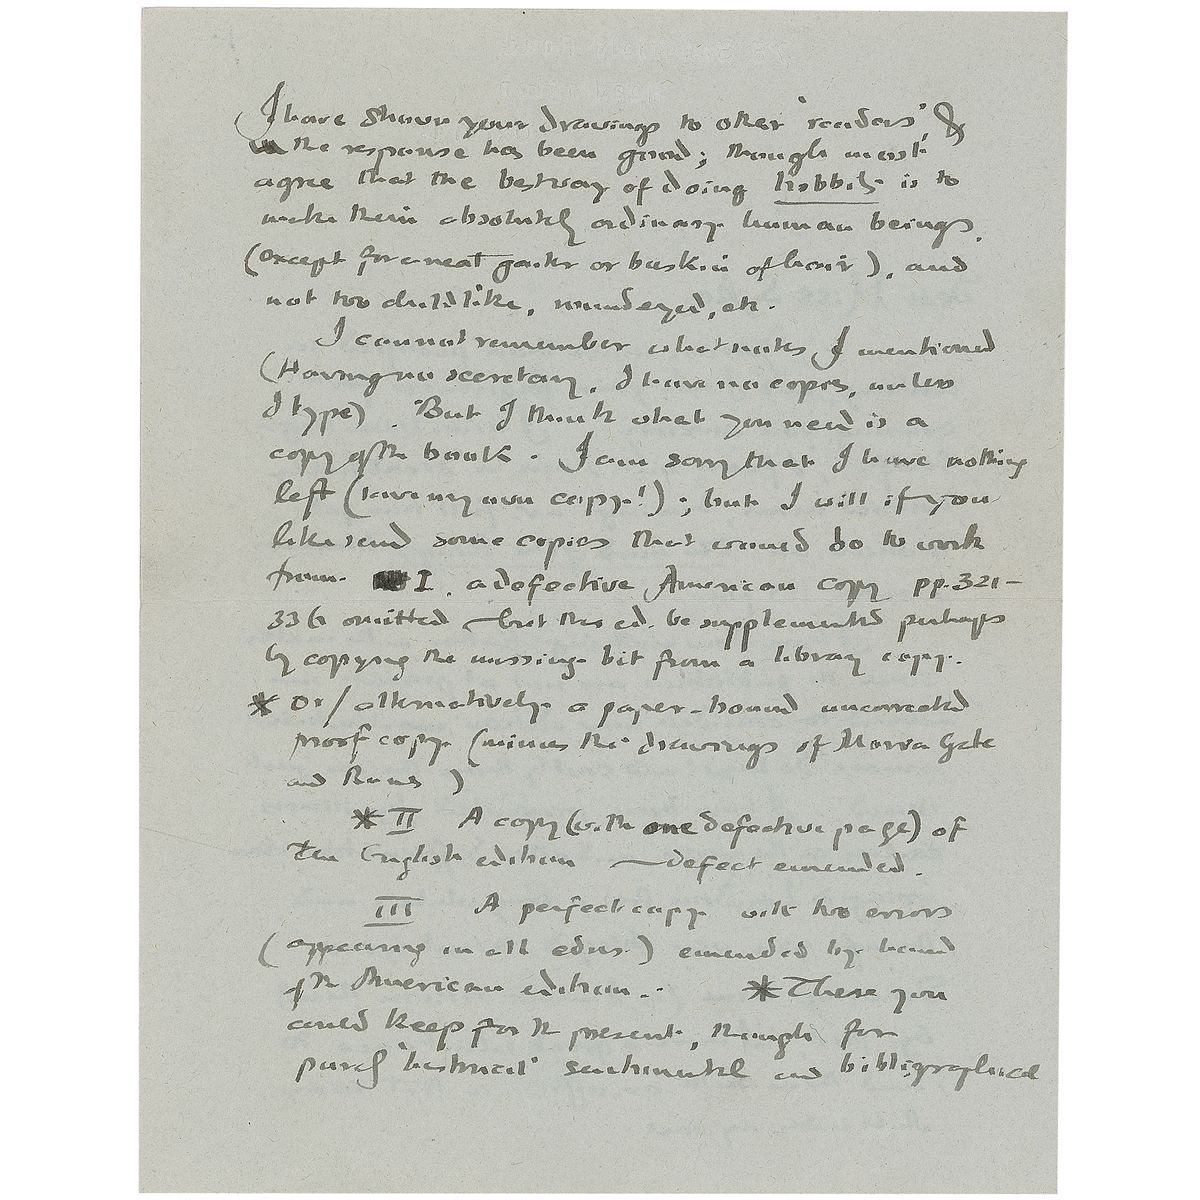 I have shown your drawings to other 'readers', &
the response has been good; though most
agree that the best way of doing hobbits is to
make them absolutely ordinary human beings,
(except for a neat gaiter or buskin of hair), and
not too childlike, roundeyed, etc.
I cannot remember what notes I mentioned
(Having no secretary, I have no copies, unless
I type). But I think what you need is a
copy of the book. I am sorry that I have nothing
left (save my own copy!); but I will if you
like send some copies that would do to work
from. I. a defective American copy pp. 321–
336 omitted – but this cd. be supplemented perhaps
by copying the missing bit from a library copy.
* Or / alternatively a paper-bound uncorrected
proof copy (minus the drawings of Moria Gate
and Runes)
* II A copy (with one defective page) of
the English edition – defect emended.
III A perfect copy with two errors
(appearing in all edns.) emended by hand
of the American edition. * These you
could keep for the present, though for
purely 'historical' sentimental and bibliographical